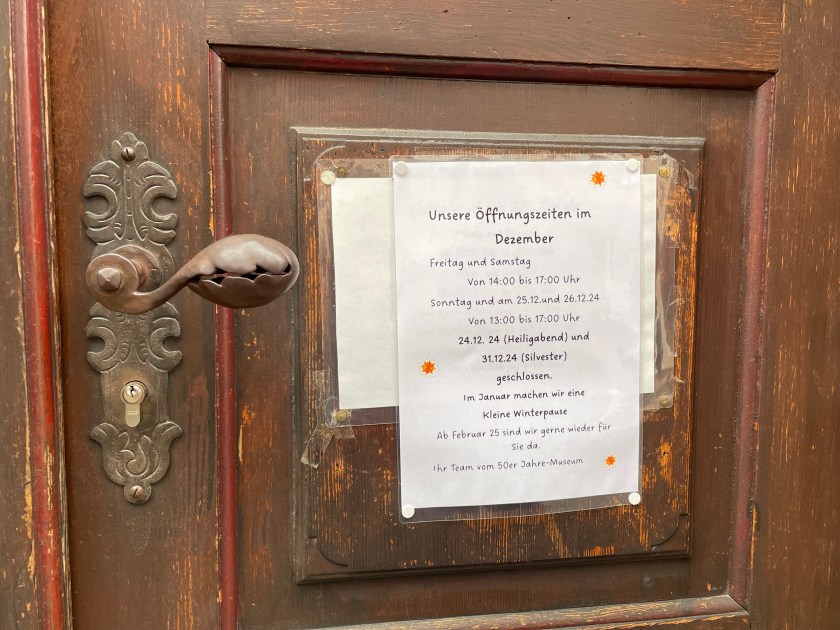 Unsere Öffnungszeiten im
Dezember
Freitag und Samstag
Von 14:00 bis 17:00 Uhr
Sonntag und am 25.12.und 26.12.24
Von 13:00 bis 17:00 Uhr
24.12. 24 (Heiligabend) und
31.12.24 (Silvester)
geschlossen.
Im Januar machen wir eine
Kleine Winterpause
Ab Februar 25 sind wir gerne wieder für
Sie da.
Ihr Team vom 50er Jahre-Museum